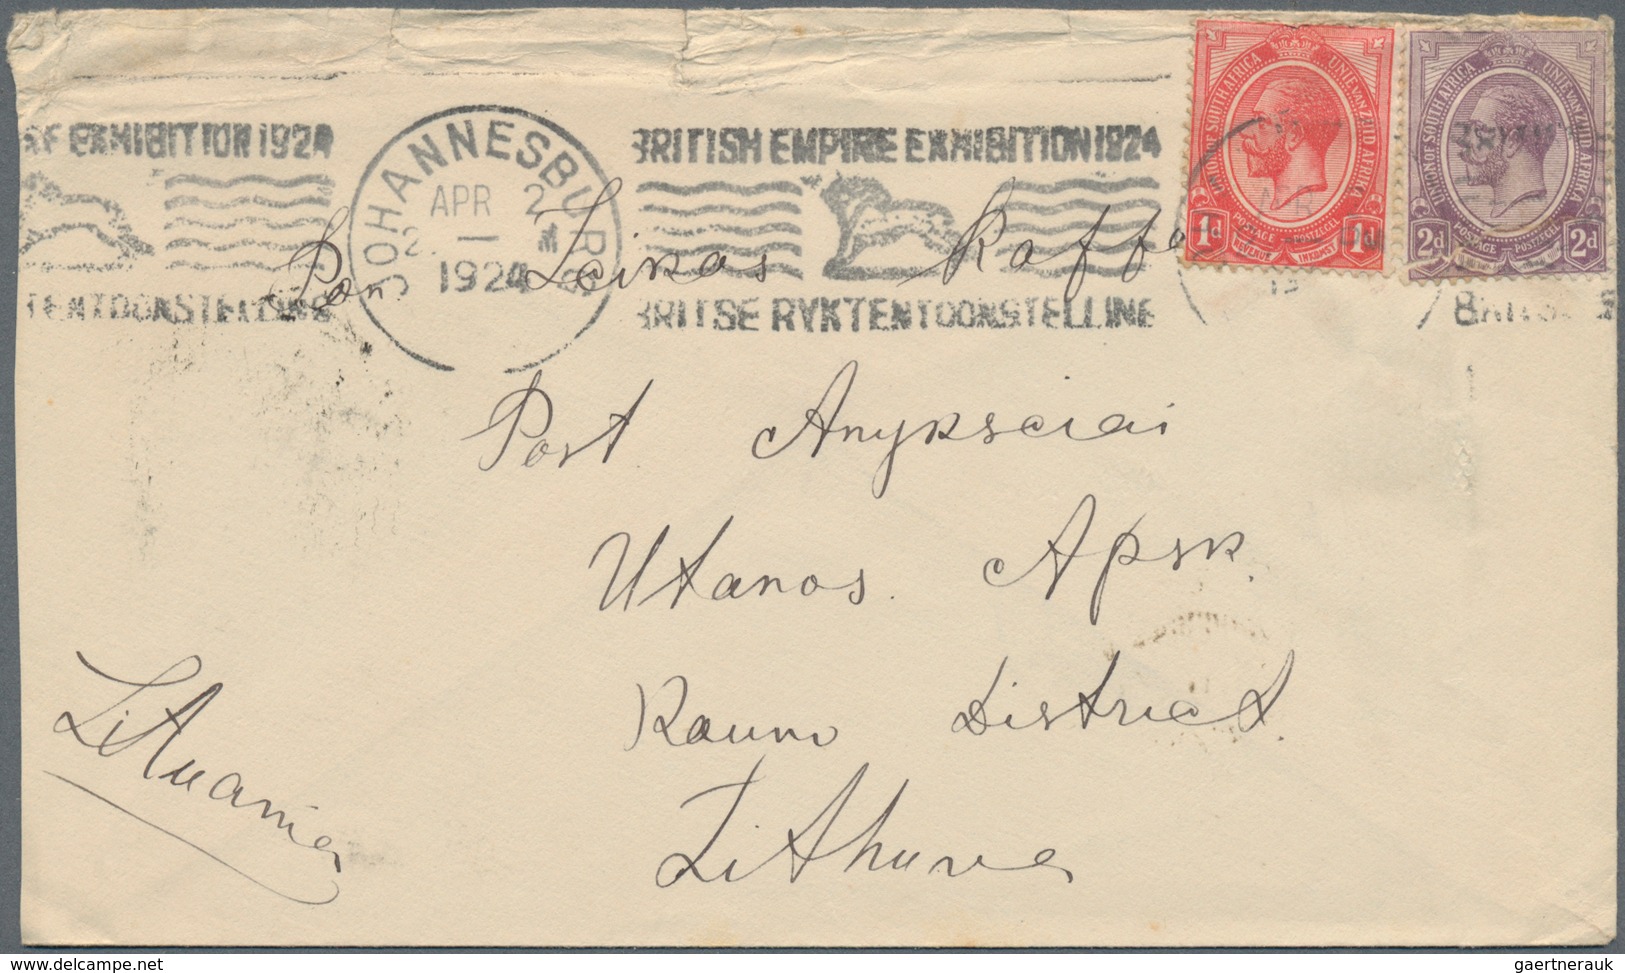 EXHIBITION 1924
TENTOONSTELLING
JOHANNESBURG
APR 2
2 - M
1924
BRITISH EMPIRE EXHIBITION 1924
BRITSE RYKTENTOONSTELLING
UNION OF SOUTH AFRICA UNIE VAN ZUID AFRIKA
1d POSTAGE POSTZEGEL 1d
REVENUE INKOMST
UNION OF SOUTH AFRICA UNIE VAN ZUID AFRIKA
2d POSTAGE POSTZEGEL 2d
Pan Leikas Kaffo
Post Anyksciai
Utanos Apsk.
Kauno District
Lithuania
Lithuva
gaertnerauk